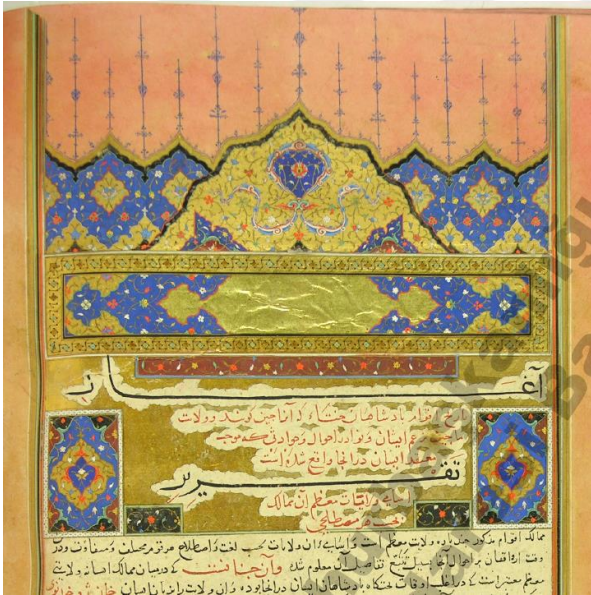 آغاز
تاریخ اقوام پادشاهان ختای که آنرا چین گویند و ولایات
ماچین بزعم ایشان و نوادر احوال و حوادثی که بموجب
معتقد ایشان در آنجا واقع شده است
تقریر
اسامی ولایات معظم آن ممالک
بحسب هر مصطلحی
ممالک اقوام مذکور چند پاره ولایت معظم است و اسامی آن ولایات بحسب لغت و اصطلاح هر قوم مختلف و متفاوت و درین
وقت از واقفان بر احوال آنجا بسبیل تتبع تفاصیل آن معلوم شد وآن چنانست که در میان ممالک ولایتی
معظم معتبر است که در اغلب اوقات تختگاه پادشاهان ایشان در آنجا بوده و آن ولایت را بزبان ایشان